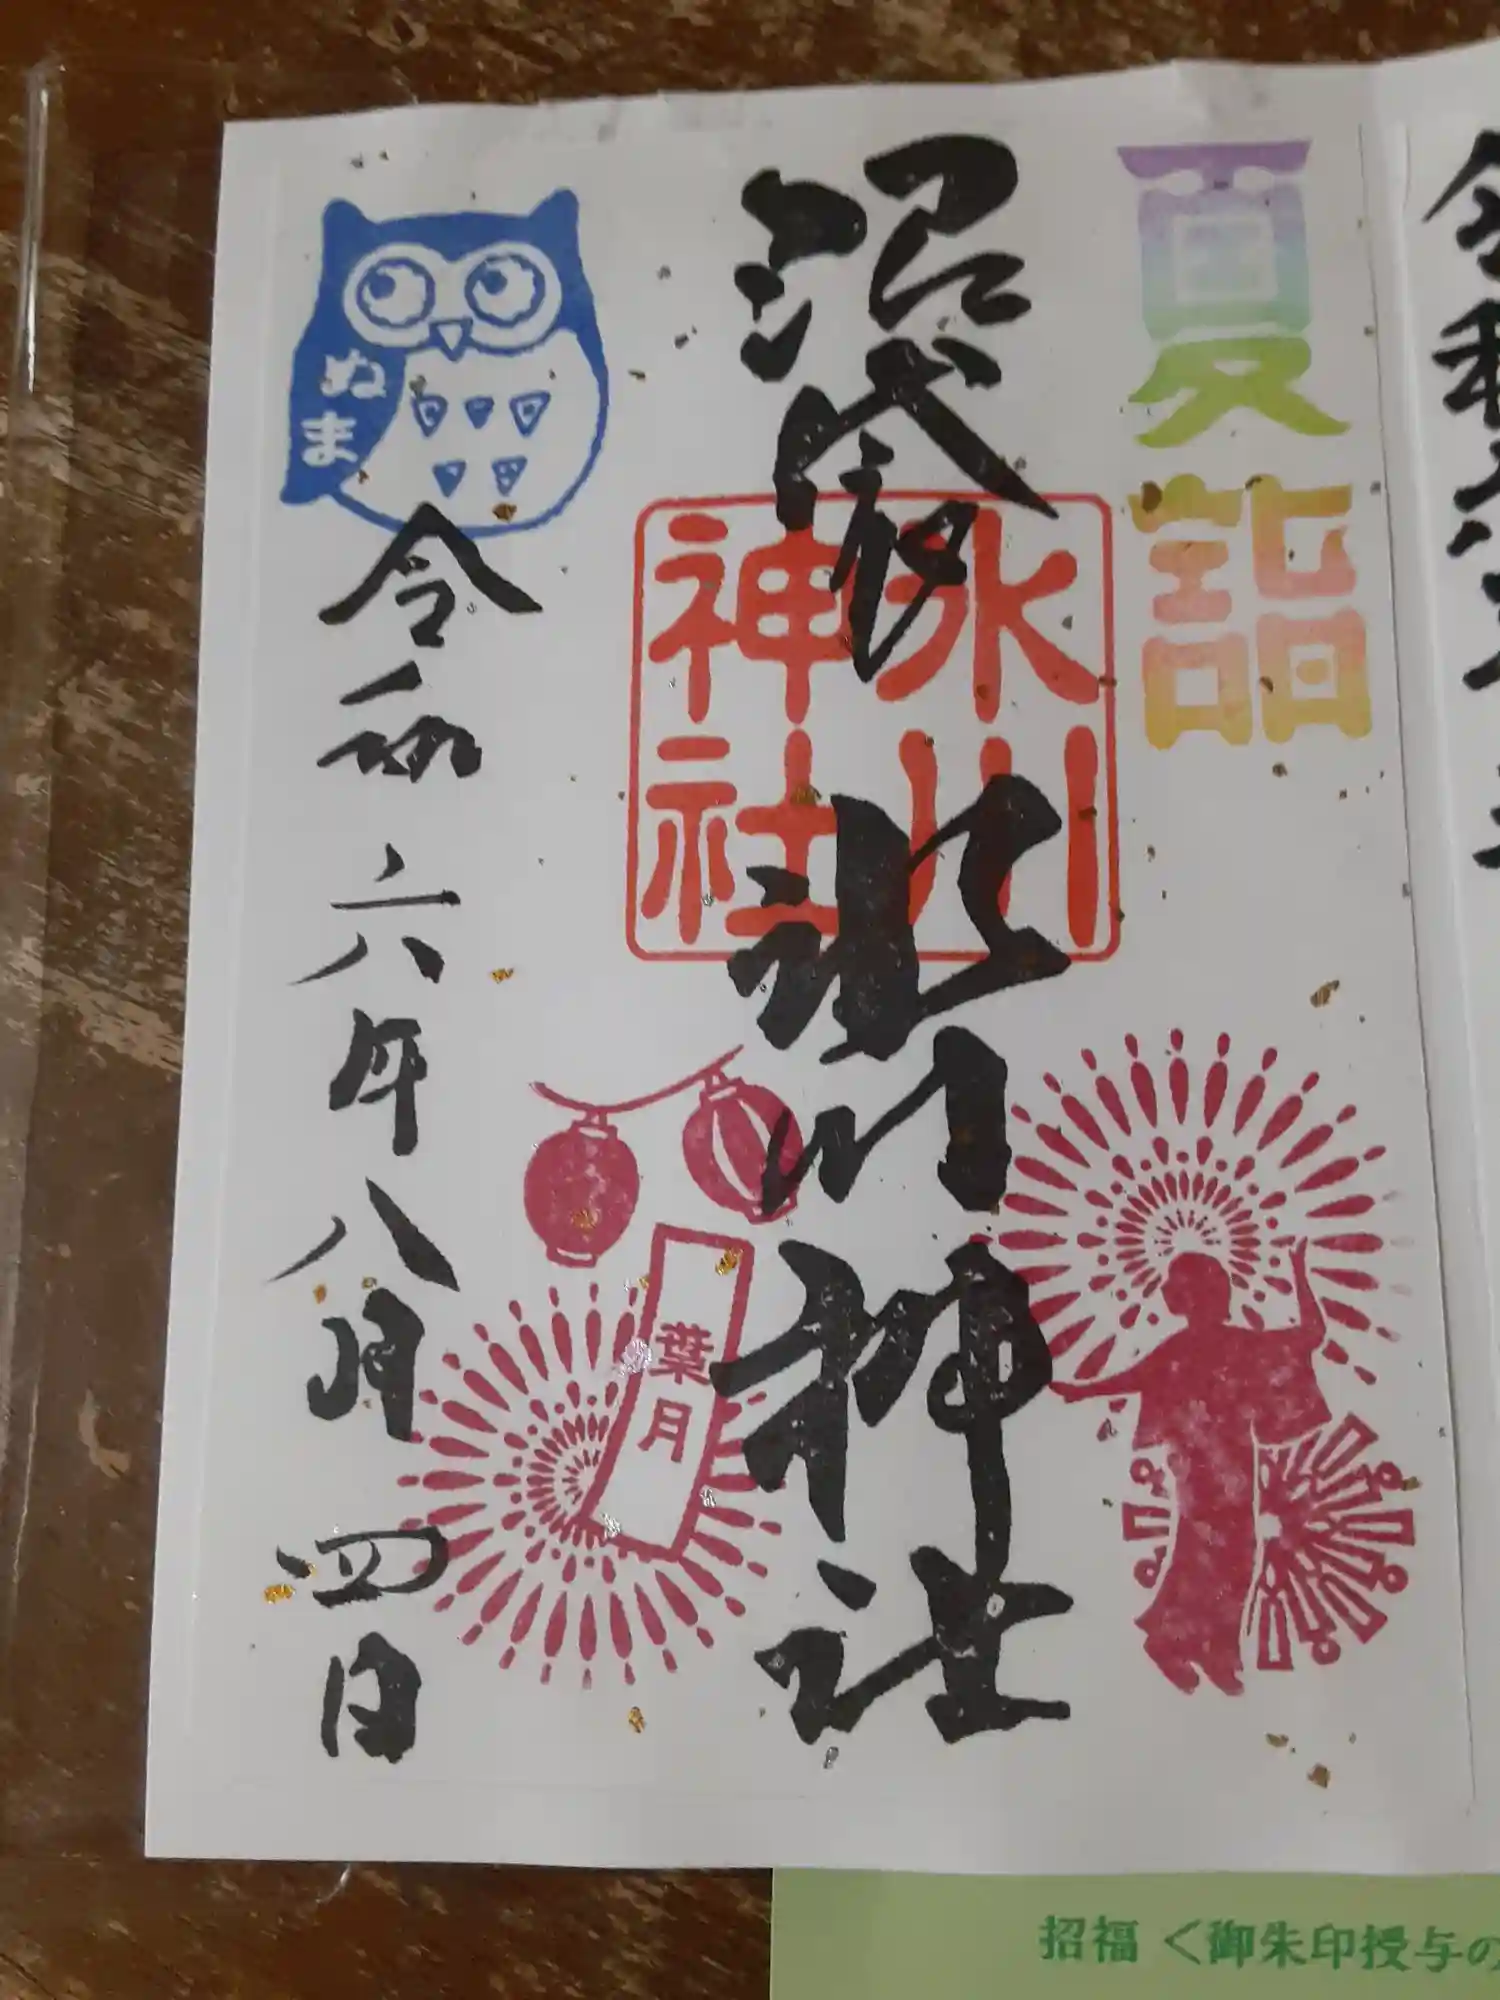 夏詣
沼袋
氷川神社
氷川
神社
葉月
ぬま
令和六年八月四日
招福 <御朱印授与の